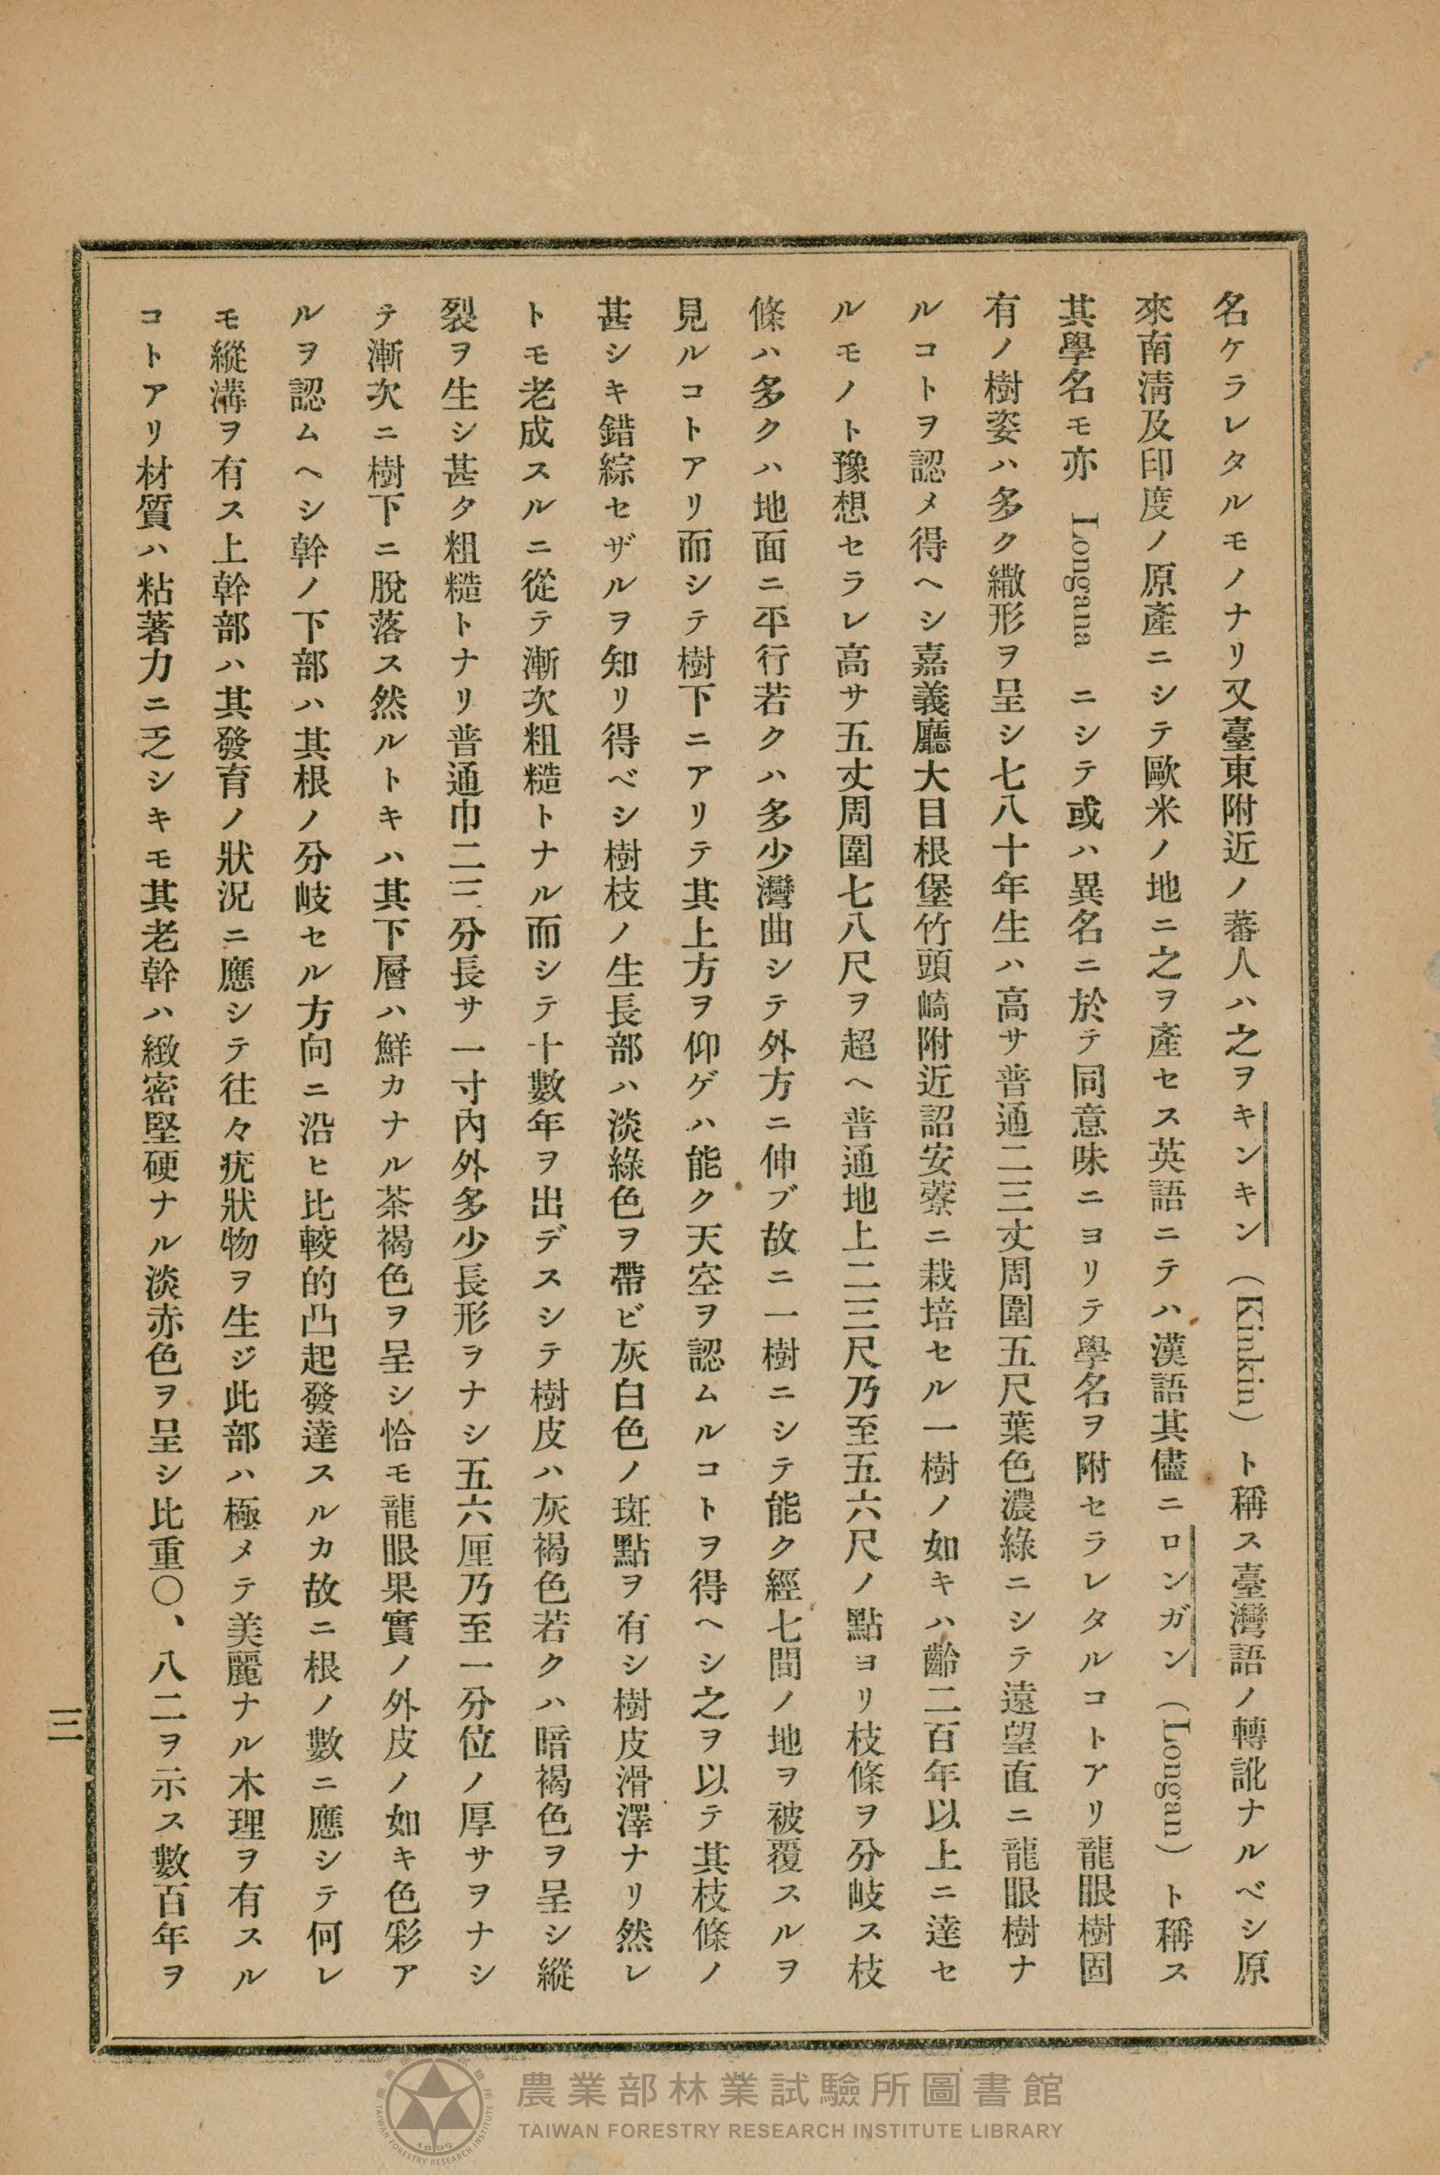 名ケラレタルモノナリ又臺東附近ノ蕃人ハ之ヲキンキン（Kinkin）ト稱ス臺灣語ノ轉訛ナルベシ原
來南淸及印度ノ原產ニシテ歐米ノ地ニ之ヲ產セス英語ニテハ漢語其儘ニロンガン（Longan）ト稱ス
其學名モ亦 Longana ニシテ或ハ異名ニ於テ同意味ニヨリテ學名ヲ附セラレタルコトアリ龍眼樹固
有ノ樹姿ハ多ク繖形ヲ呈シ七八十年生ハ高サ普通二三丈周圍五尺葉色濃綠ニシテ遠望直ニ龍眼樹ナ
ルコトヲ認メ得ヘシ嘉義廳大目根堡竹頭崎附近詔安藔ニ栽培セル一樹ノ如キハ齡二百年以上ニ達セ
ルモノト豫想セラレ高サ五丈周圍七八尺ヲ超ヘ普通地上二三尺乃至五六尺ノ點ヨリ枝條ヲ分岐ス枝
條ハ多クハ地面ニ平行若クハ多少灣曲シテ外方ニ伸ブ故ニ一樹ニシテ能ク經七間ノ地ヲ被覆スルヲ
見ルコトアリ而シテ樹下ニアリテ其上方ヲ仰ゲハ能ク天空ヲ認ムルコトヲ得ヘシ之ヲ以テ其枝條ノ
甚シキ錯綜セザルヲ知リ得ベシ樹枝ノ生長部ハ淡綠色ヲ帶ビ灰白色ノ斑點ヲ有シ樹皮滑澤ナリ然レ
トモ老成スルニ從テ漸次粗糙トナル而シテ十數年ヲ出デスシテ樹皮ハ灰褐色若クハ暗褐色ヲ呈シ縱
裂ヲ生シ甚タ粗糙トナリ普通巾二三分長サ一寸內外多少長形ヲナシ五六厘乃至一分位ノ厚サヲナシ
テ漸次ニ樹下ニ脫落ス然ルトキハ其下層ハ鮮カナル茶褐色ヲ呈シ恰モ龍眼果實ノ外皮ノ如キ色彩ア
ルヲ認ムヘシ幹ノ下部ハ其根ノ分岐セル方向ニ沿ヒ比較的凸起發達スルカ故ニ根ノ數ニ應シテ何レ
モ縱溝ヲ有ス上幹部ハ其發育ノ狀況ニ應シテ往々疣狀物ヲ生ジ此部ハ極メテ美麗ナル木理ヲ有スル
コトアリ材質ハ粘著力ニ乏シキモ其老幹ハ緻密堅硬ナル淡赤色ヲ呈シ比重〇、八二ヲ示ス數百年ヲ
三
農業部林業試驗所圖書館
TAIWAN FORESTRY RESEARCH INSTITUTE LIBRARY